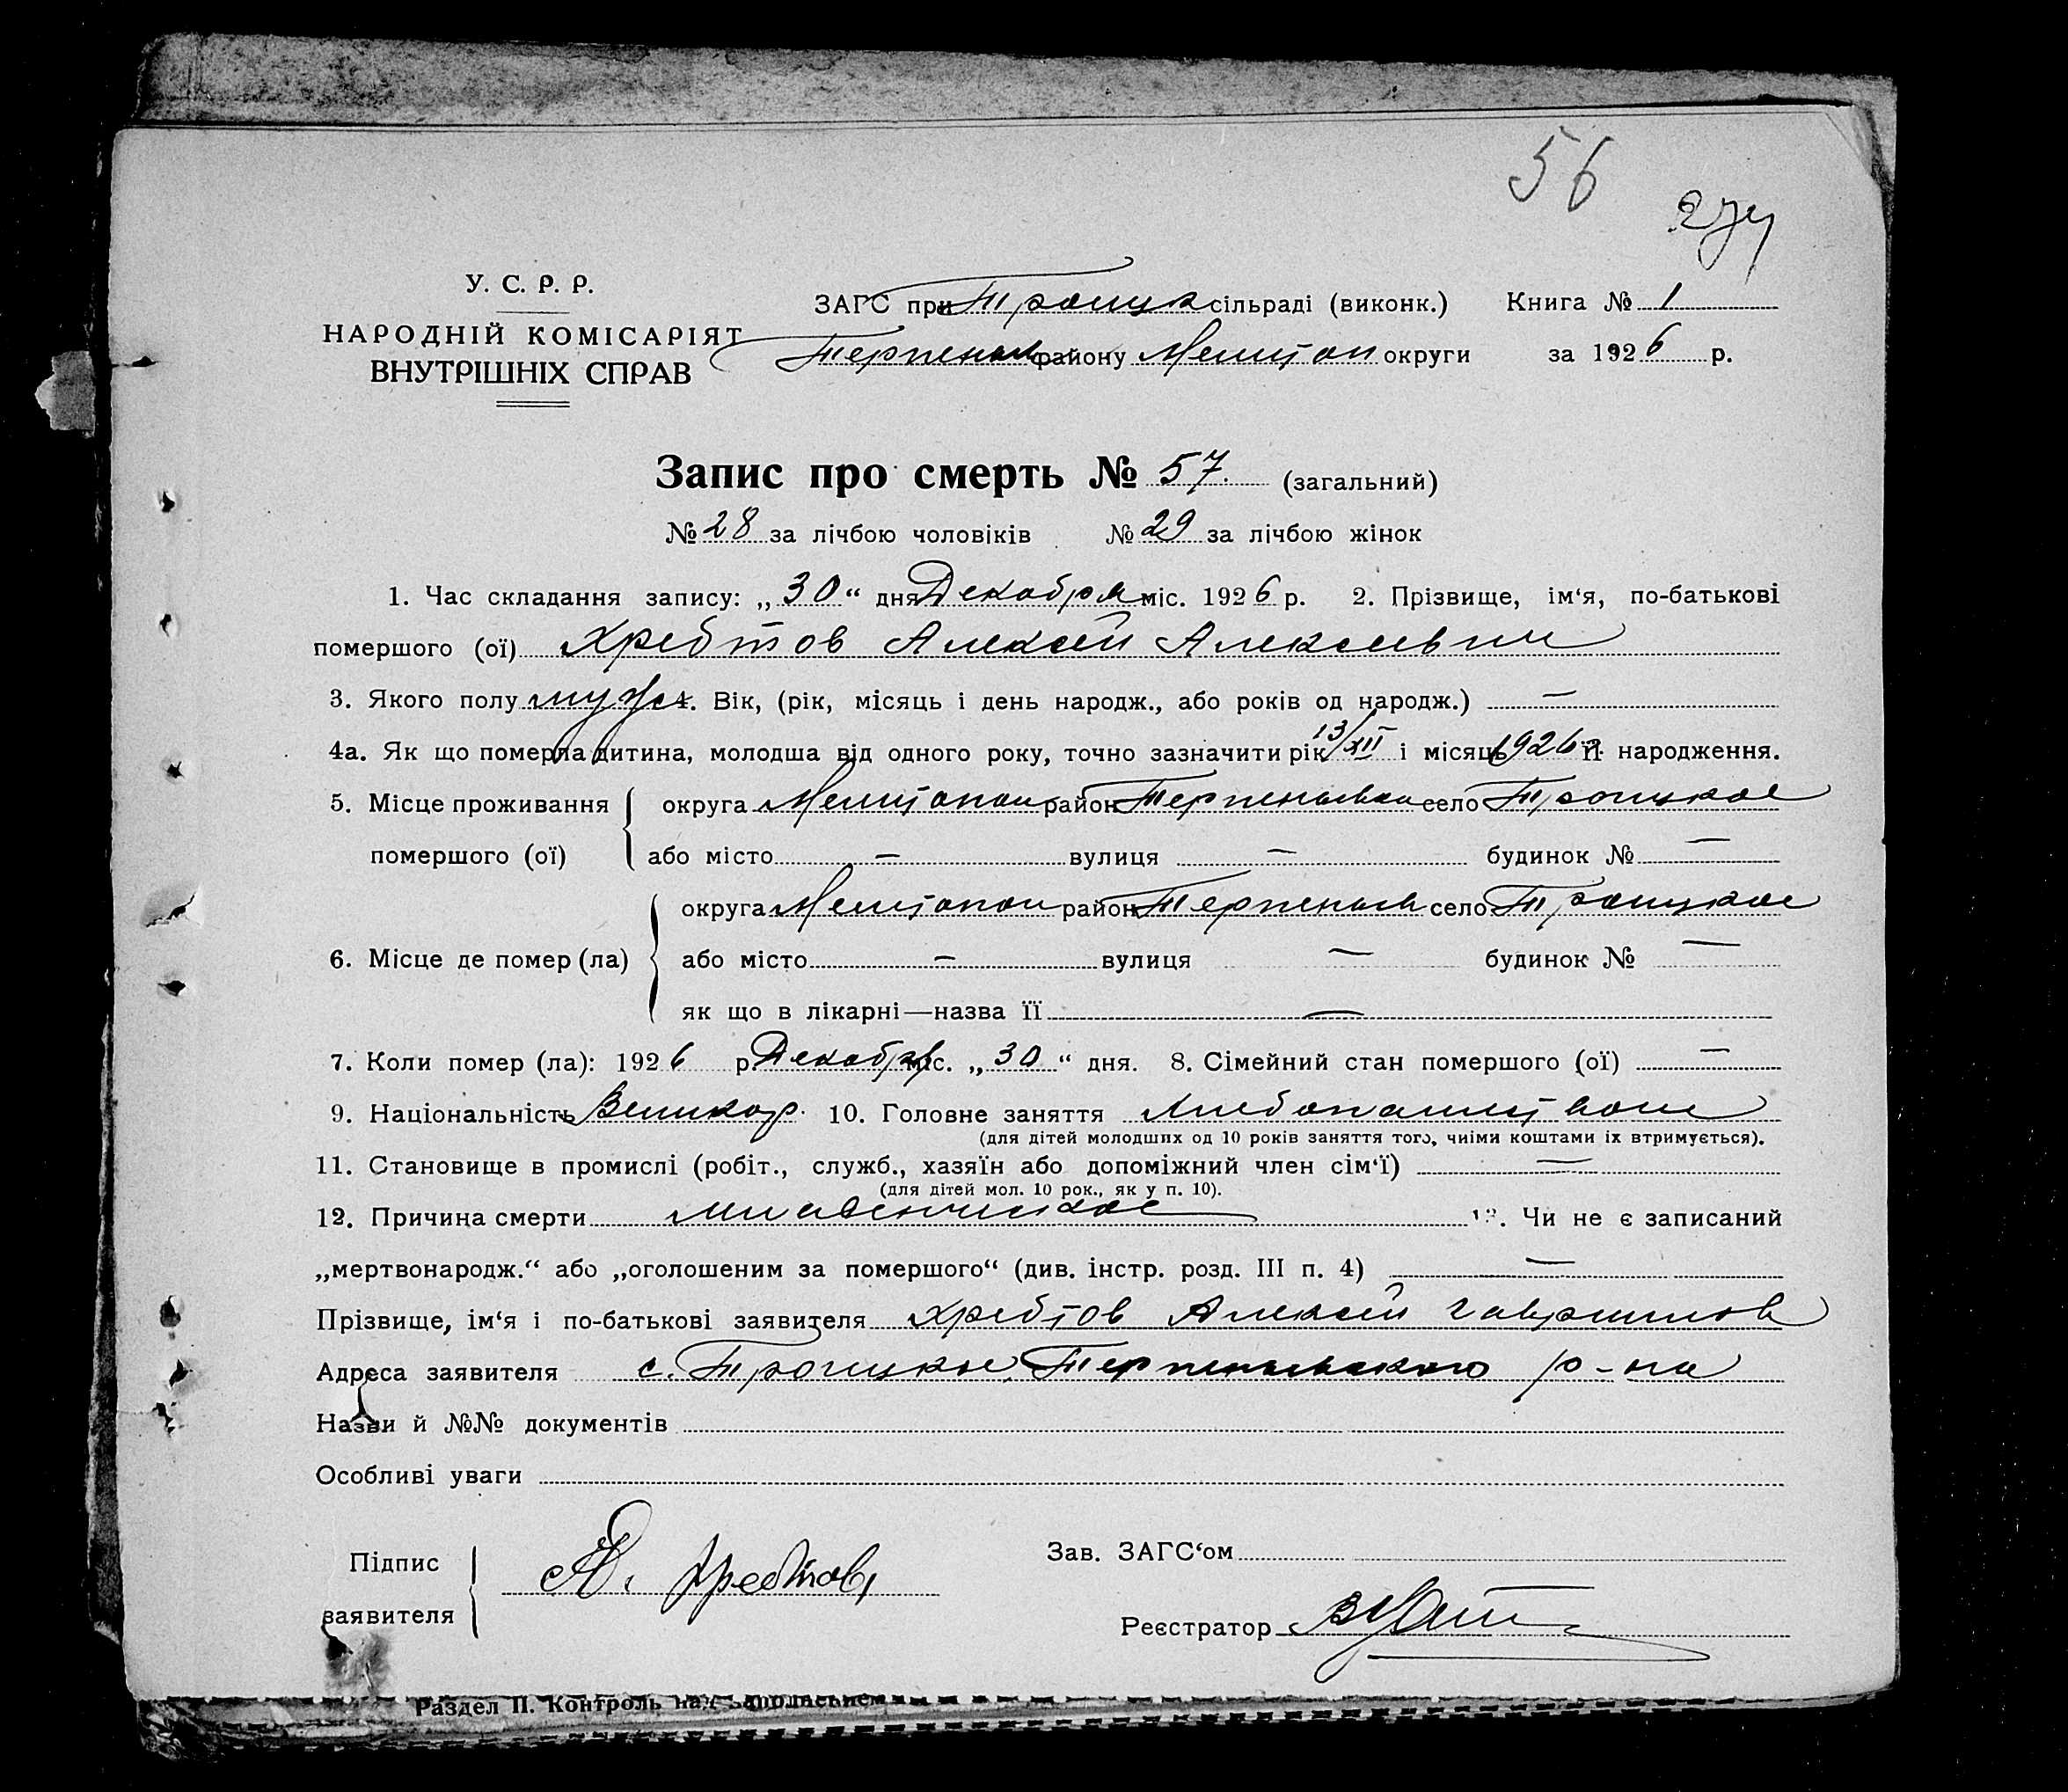 56
274
У. С. Р. Р.
НАРОДНІЙ КОМІСАРІЯТ
ВНУТРІШНІХ СПРАВ
ЗАГС при Троицк сільраді (виконк.) Книга № 1
Терпеньев району Мелитоп округи за 1926 р.
Запис про смерть № 57. (загальний)
№ 28 за лічбою чоловіків № 29 за лічбою жінок
1. Час складання запису: „30“ дня Декабря міс. 1926 р. 2. Прізвище, ім‘я, по-батькові
помершого (ої) Хребтов Алексей Алексеевич
3. Якого полу муж 4. Вік, (рік, місяць і день народж., або років од народж.) —
4а. Як що померла дитина, молодша від одного року, точно зазначити рік 13/XII і місяць 1926 її народження.
5. Місце проживання округа Мелитопол район Терпеньевск село Троицкое
помершого (ої) або місто — вулиця — будинок № —
округа Мелитопол район Терпеньев село Троицкое
6. Місце де помер (ла) або місто — вулиця — будинок № —
як що в лікарні—назва її —
7. Коли помер (ла): 1926 р. Декабря міс. „30“ дня. 8. Сімейний стан помершого (ої) —
9. Національність Великор. 10. Головне заняття Хлебопашество
(для дітей молодших од 10 років заняття того, чиїми коштами їх втримується).
11. Становище в промислі (робіт., служб., хазяїн або допоміжний член сім‘ї) —
(для дітей мол. 10 рок., як у п. 10).
12. Причина смерти младенческое 13. Чи не є записаний
„мертвонародж.“ або „оголошеним за помершого“ (див. інстр. розд. III п. 4) —
Прізвище, ім‘я і по-батькові заявителя Хребтов Алексей Гаврилов
Адреса заявителя с. Троицкое, Терпеньевского р-на
Назви й №№ документів
Особливі уваги
Підпис
заявителя А. Хребтовъ
Зав. ЗАГС‘ом
Реєстратор
Раздел II. Контроль над